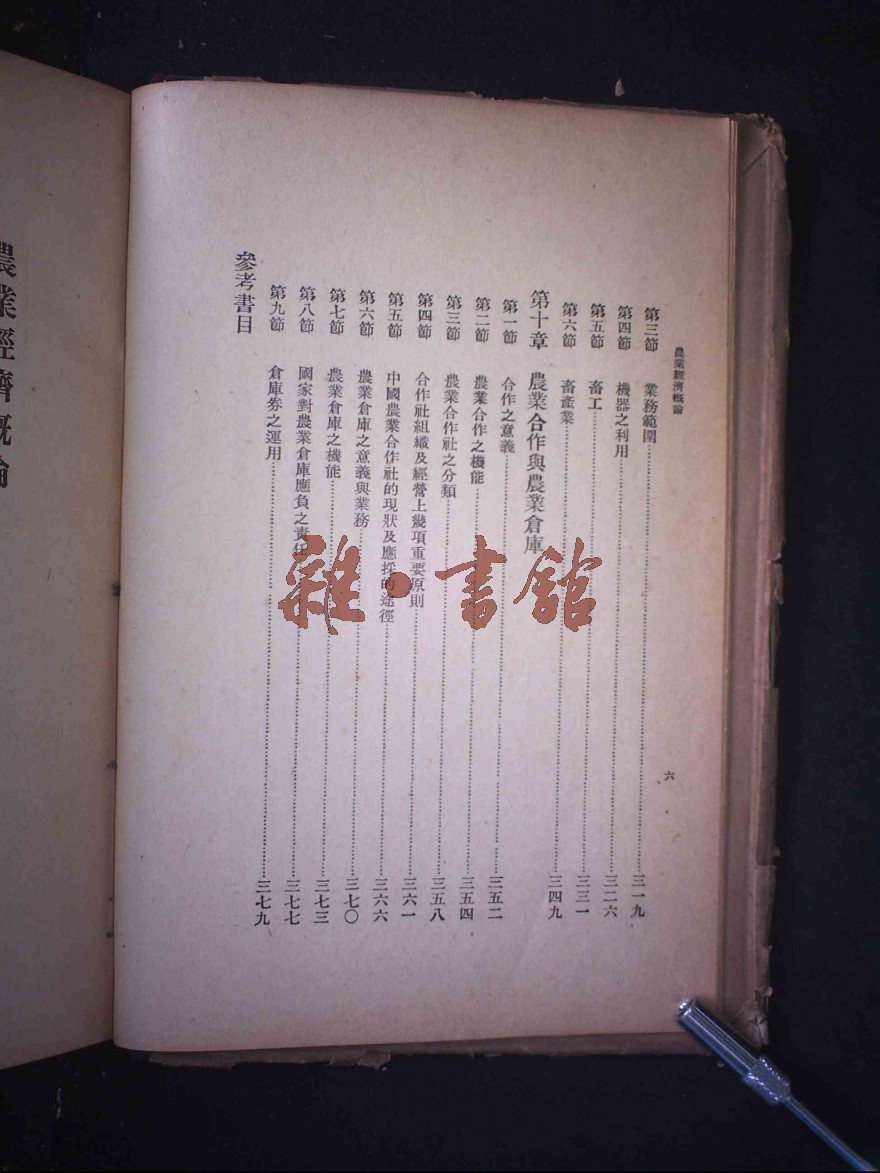 農業經濟概論
六
第三節 業務範圍……三一九
第四節 機器之利用……三二六
第五節 畜工……三三一
第六節 畜產業……三四九
第十章 農業合作與農業倉庫
第一節 合作之意義……三五二
第二節 農業合作之機能……三五四
第三節 農業合作社之分類……三五八
第四節 合作社組織及經營上幾項重要原則……三六一
第五節 中國農業合作社的現狀及應採的途徑……三六六
第六節 農業倉庫之意義與業務……三七〇
第七節 農業倉庫之機能……三七三
第八節 國家對農業倉庫應負之責任……三七七
第九節 倉庫券之運用……三七九
參考書目
農業經濟概論
雜·書館